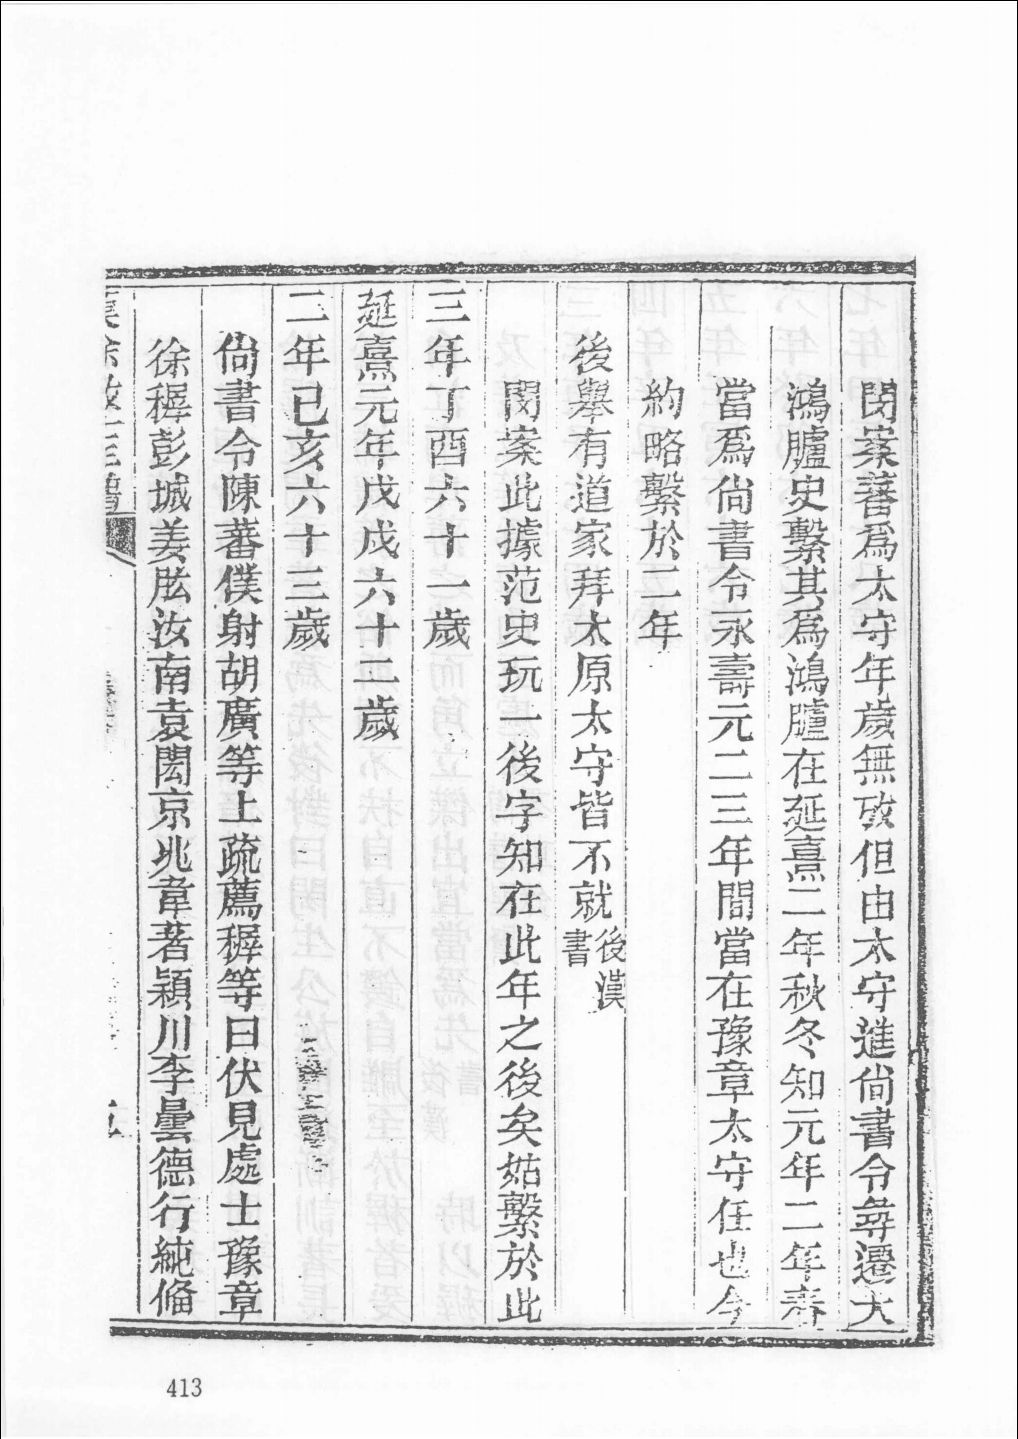 閔案蕃爲太守年歲無攷但由太守進尙書令尋遷大
鴻臚史繫其爲鴻臚在延熹二年秋冬知元年二年春
當爲尙書令永壽元二三年間當在豫章太守任也今
約略繫於二年
後舉有道家拜太原太守皆不就後漢書
閔案此據范史玩一後字知在此年之後矣姑繫於此
三年丁酉六十一歲
延熹元年戊戌六十二歲
二年己亥六十三歲
尙書令陳蕃僕射胡廣等上疏薦穉等曰伏見處士豫章
徐穉彭城姜肱汝南袁閎京兆韋著潁川李曇德行純備
413